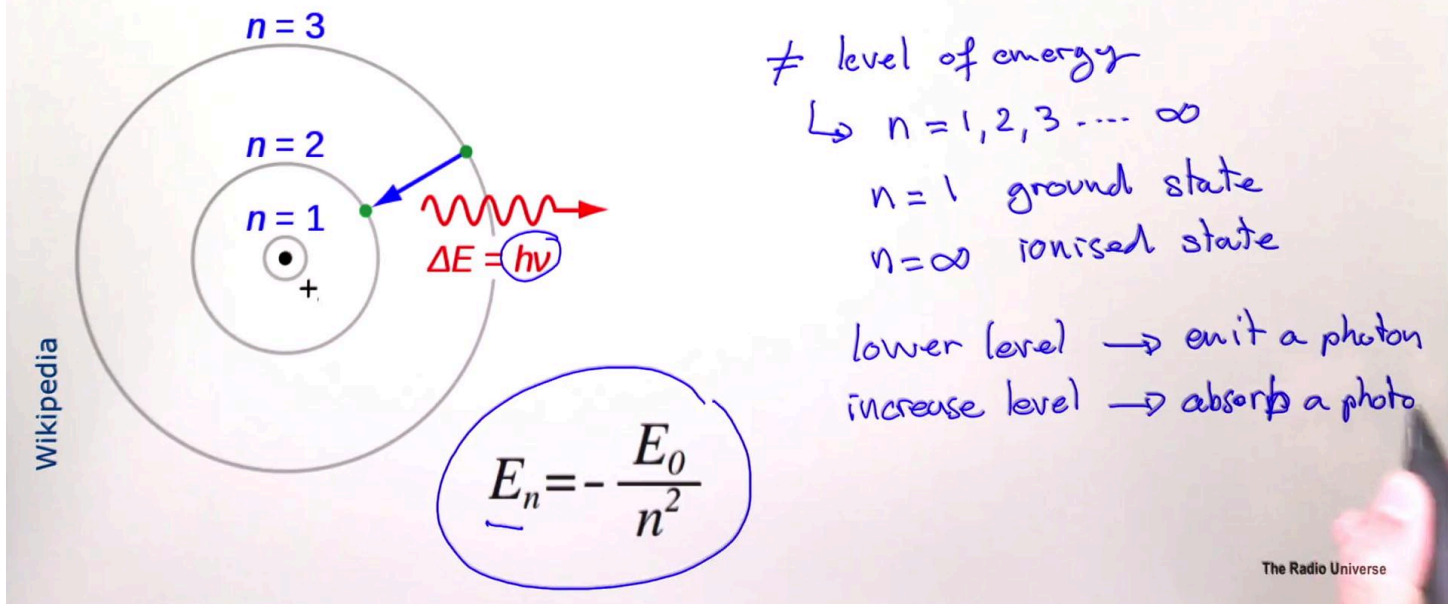 n = 3
n = 2
n = 1
+
ΔE = hν
Wikipedia
E_n = - E_0 / n^2
≠ level of energy
↳ n = 1, 2, 3 .... ∞
n = 1 ground state
n = ∞ ionised state
lower level → emit a photon
increase level → absorb a photo
The Radio Universe